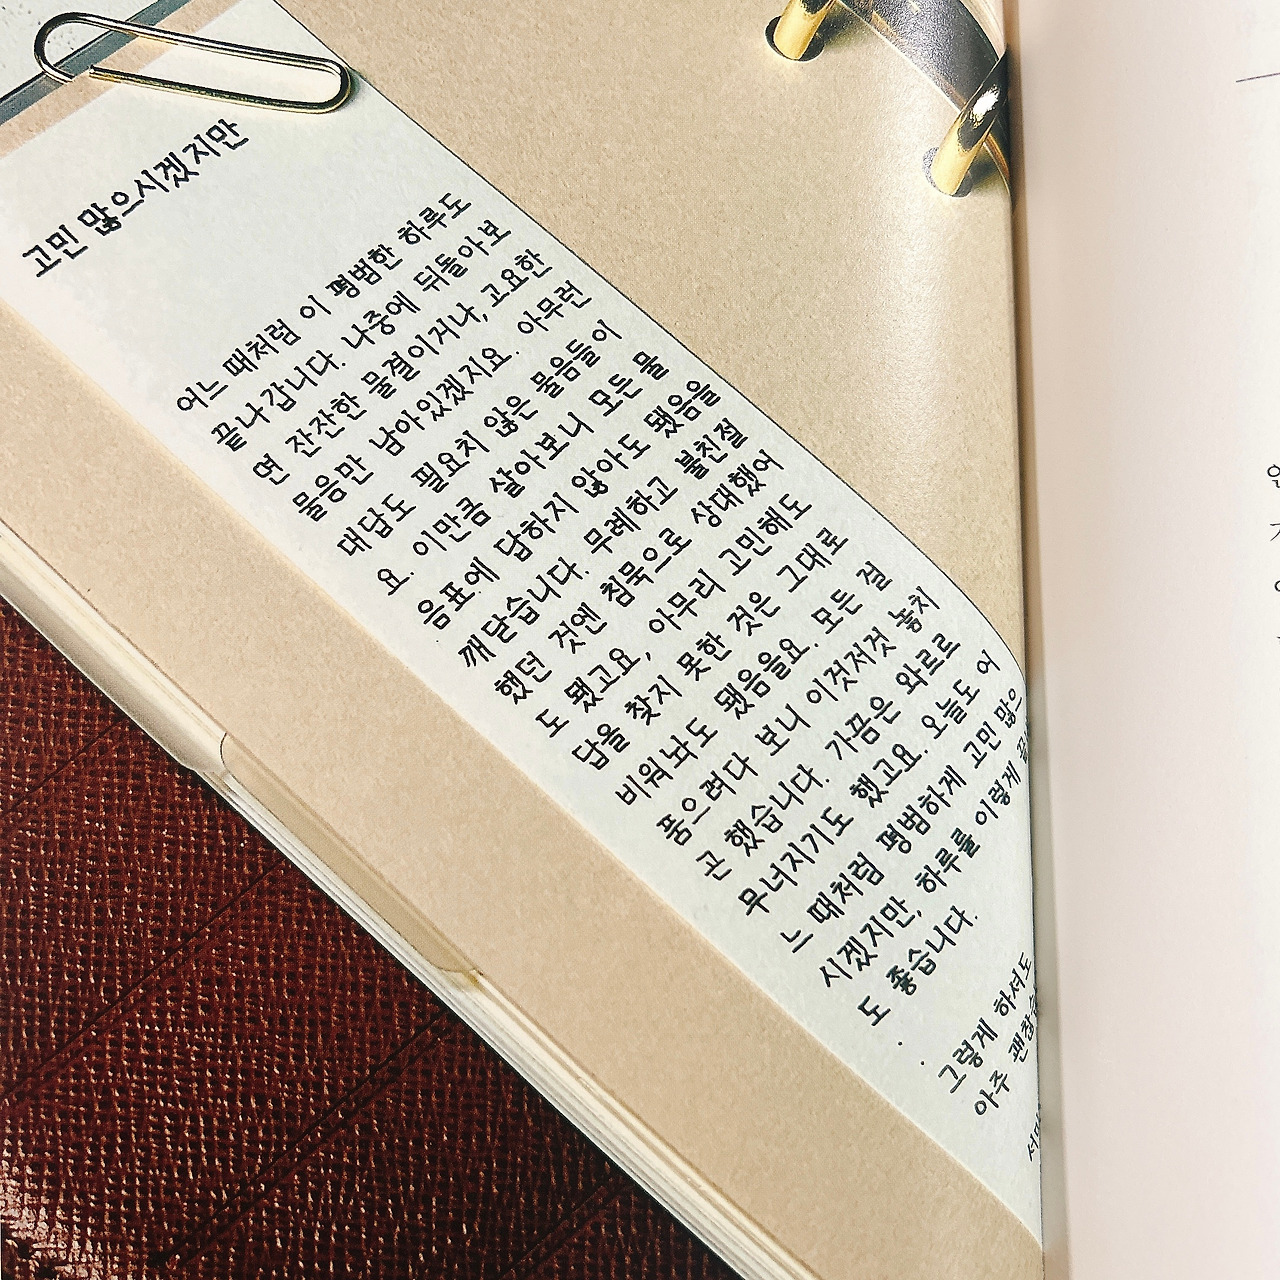 고민 많으시겠지만
어느 때처럼 이 평범한 하루도
끝나갑니다. 나중에 뒤돌아보
면 잔잔한 물결이거나, 고요한
물음만 남아있겠지요. 아무런
대답도 필요치 않은 물음들이
요. 이만큼 살아보니 모든 물
음표에 답하지 않아도 됐음을
깨닫습니다. 무례하고 불친절
했던 것엔 침묵으로 상대했어
도 됐고요, 아무리 고민해도
답을 찾지 못한 것은 그대로
비워놔도 됐음을요. 모든 걸
품으려다 보니 이것저것 놓치
곤 했습니다. 가끔은 와르르
무너지기도 했고요. 오늘도 어
느 때처럼 평범하게 고민 많으
시겠지만, 하루를 이렇게
도 좋습니다.
그렇게 하셔도
아주